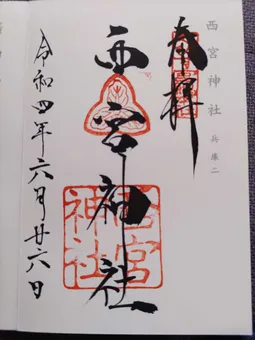 西宮神社 兵庫二
奉拝
西宮神社
西宮神社
令和四年六月廿六日